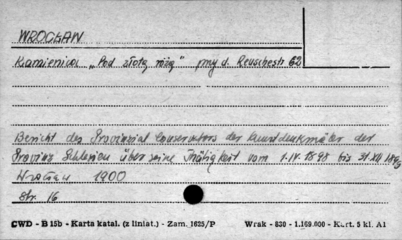 WROCŁAW
Kamienica "Pod złotą różą" przy d. Reuschestr 62
Bericht des Provinzial Conservators der Kunstdenkmäler der
Provinz Schlesien über seine Tätigkeit vom 1.IV.1898 bis 31 XII
Wrocław 1900
str. 16
CWD - B 15b - Karta katal. (z liniat.) - Zam. 1625/P Wrak - 630 - 1.169.000 - Kart. 5 kl. A1